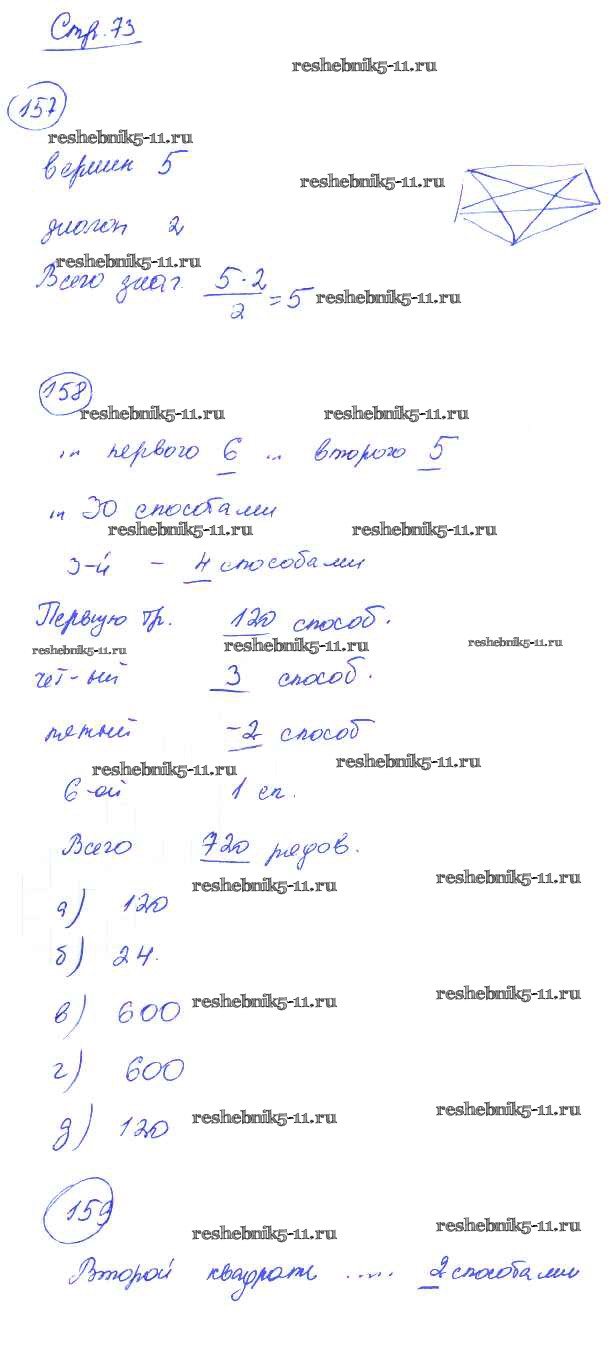 Стр. 73
reshebnik5-11.ru
157
reshebnik5-11.ru
вершин 5
reshebnik5-11.ru
диагон 2
reshebnik5-11.ru
Всего диаг. 5·2/2 = 5 reshebnik5-11.ru
158
reshebnik5-11.ru reshebnik5-11.ru
... первого 6 ... второго 5
... 30 способами
reshebnik5-11.ru reshebnik5-11.ru
3-й - 4 способами
Первую тр. 120 способ.
reshebnik5-11.ru reshebnik5-11.ru reshebnik5-11.ru
чет-ый 3 способ.
пятый -2 способ
reshebnik5-11.ru reshebnik5-11.ru
6-ой 1 сп.
Всего 720 рядов.
reshebnik5-11.ru reshebnik5-11.ru
а) 120
б) 24.
reshebnik5-11.ru reshebnik5-11.ru
в) 600
г) 600
reshebnik5-11.ru reshebnik5-11.ru
д) 120
159
reshebnik5-11.ru reshebnik5-11.ru
Второй квадрат .... 2 способами